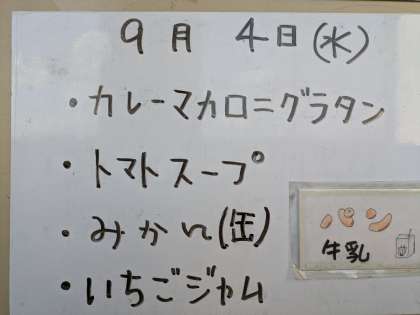 9月 4日(水)
・カレーマカロニグラタン
・トマトスープ
・みかん(缶)
・いちごジャム
パン
牛乳